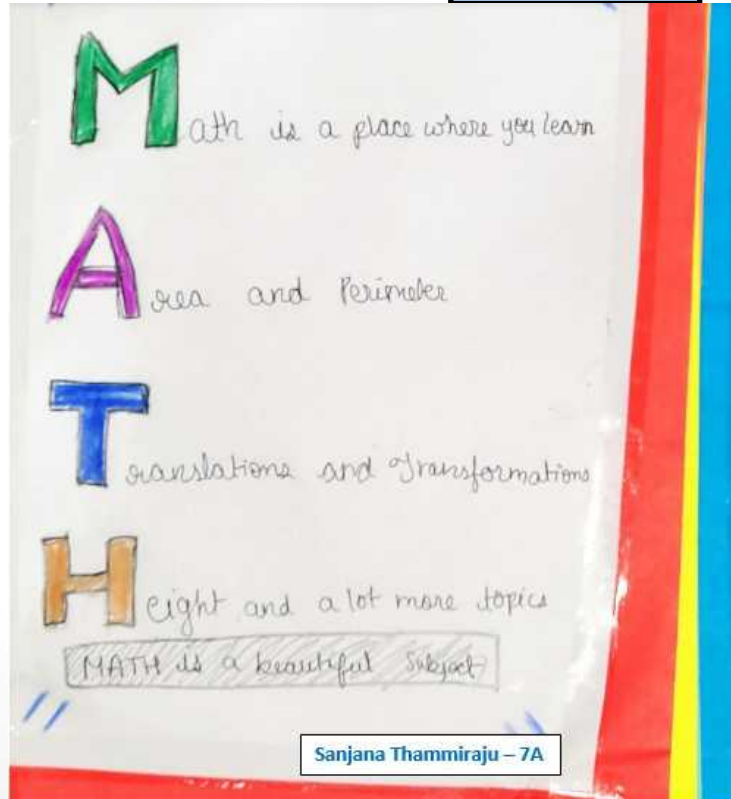 Math is a place where you learn
Area and Perimeter
Translations and Transformations
Height and a lot more topics
MATH is a beautiful Subject
Sanjana Thammiraju – 7A